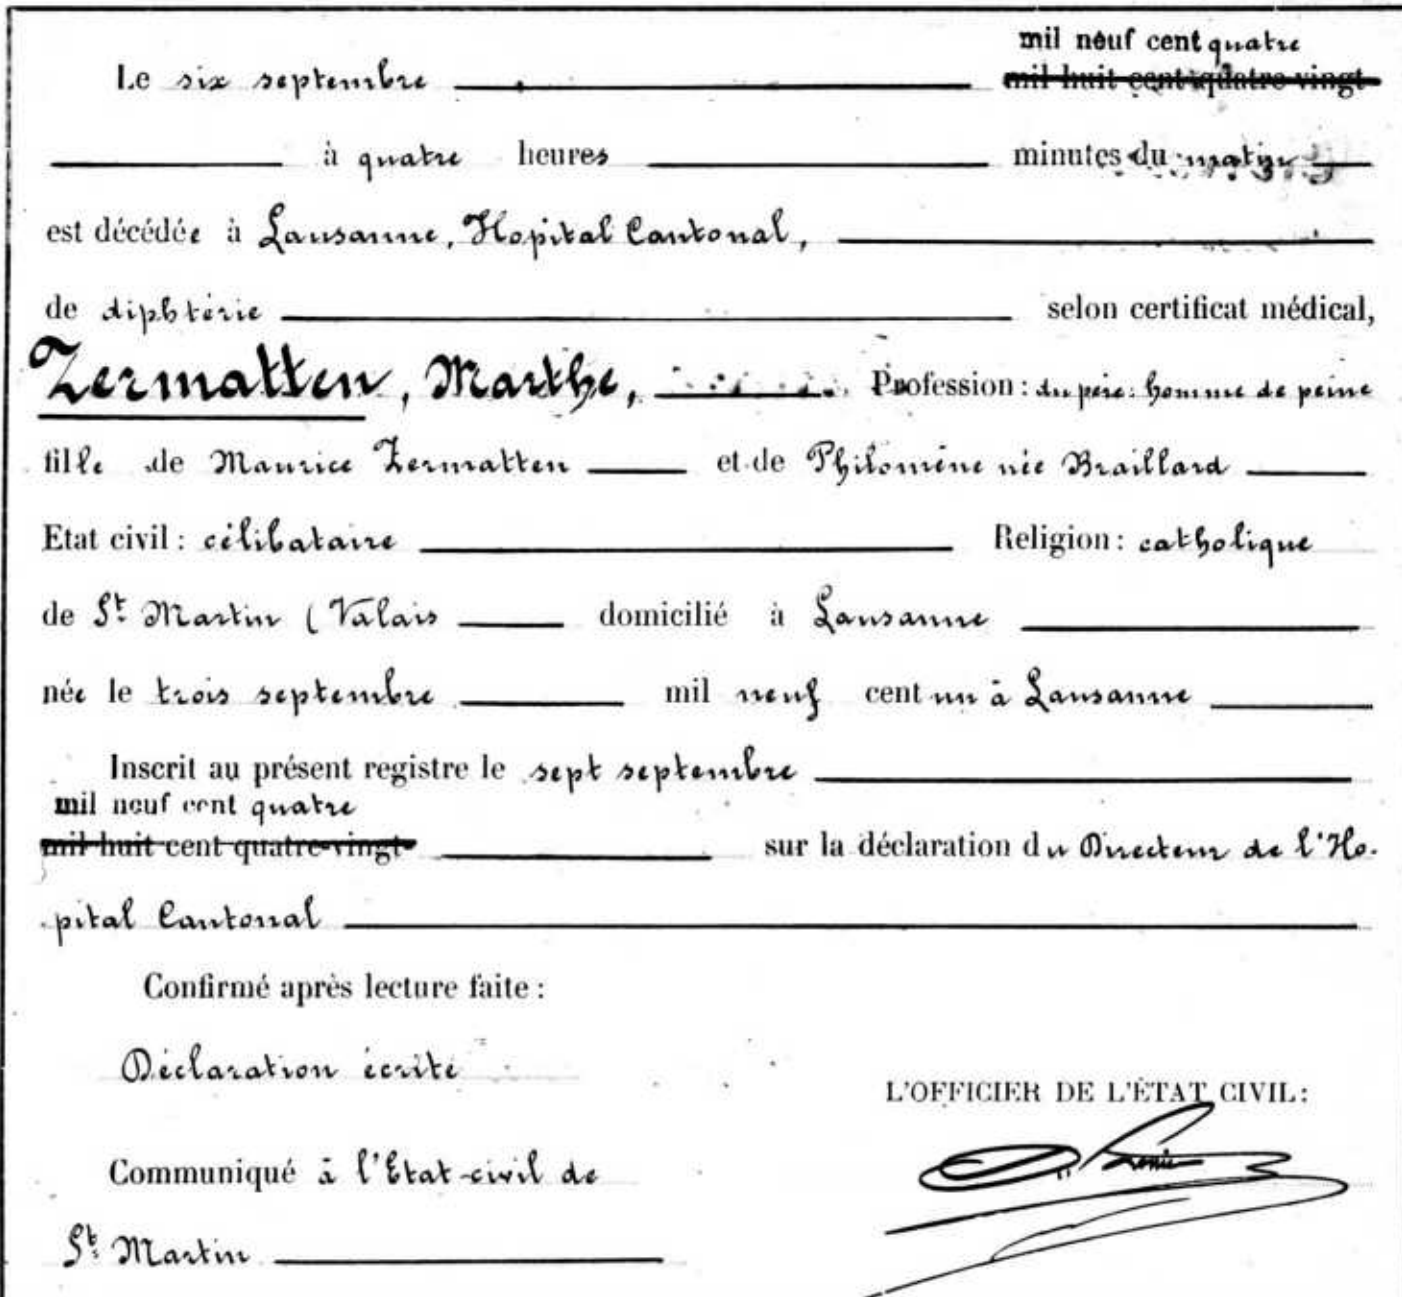 mil neuf cent quatre
Le six septembre mil huit cent quatre-vingt
à quatre heures minutes du matin
est décédée à Lausanne, Hopital Cantonal,
de diphtérie selon certificat médical,
Zermatten, Marthe, Profession : du père : homme de peine
fille de Maurice Zermatten et de Philomène née Braillard
Etat civil : célibataire Religion : catholique
de St Martin ( Valais domicilié à Lausanne
née le trois septembre mil neuf cent un à Lausanne
Inscrit au présent registre le sept septembre
mil neuf cent quatre
mil huit cent quatre-vingt- sur la déclaration du Directeur de l'Ho-
pital Cantonal
Confirmé après lecture faite :
Déclaration écrite
L'OFFICIER DE L'ÉTAT CIVIL :
Communiqué à l'Etat-civil de
St Martin